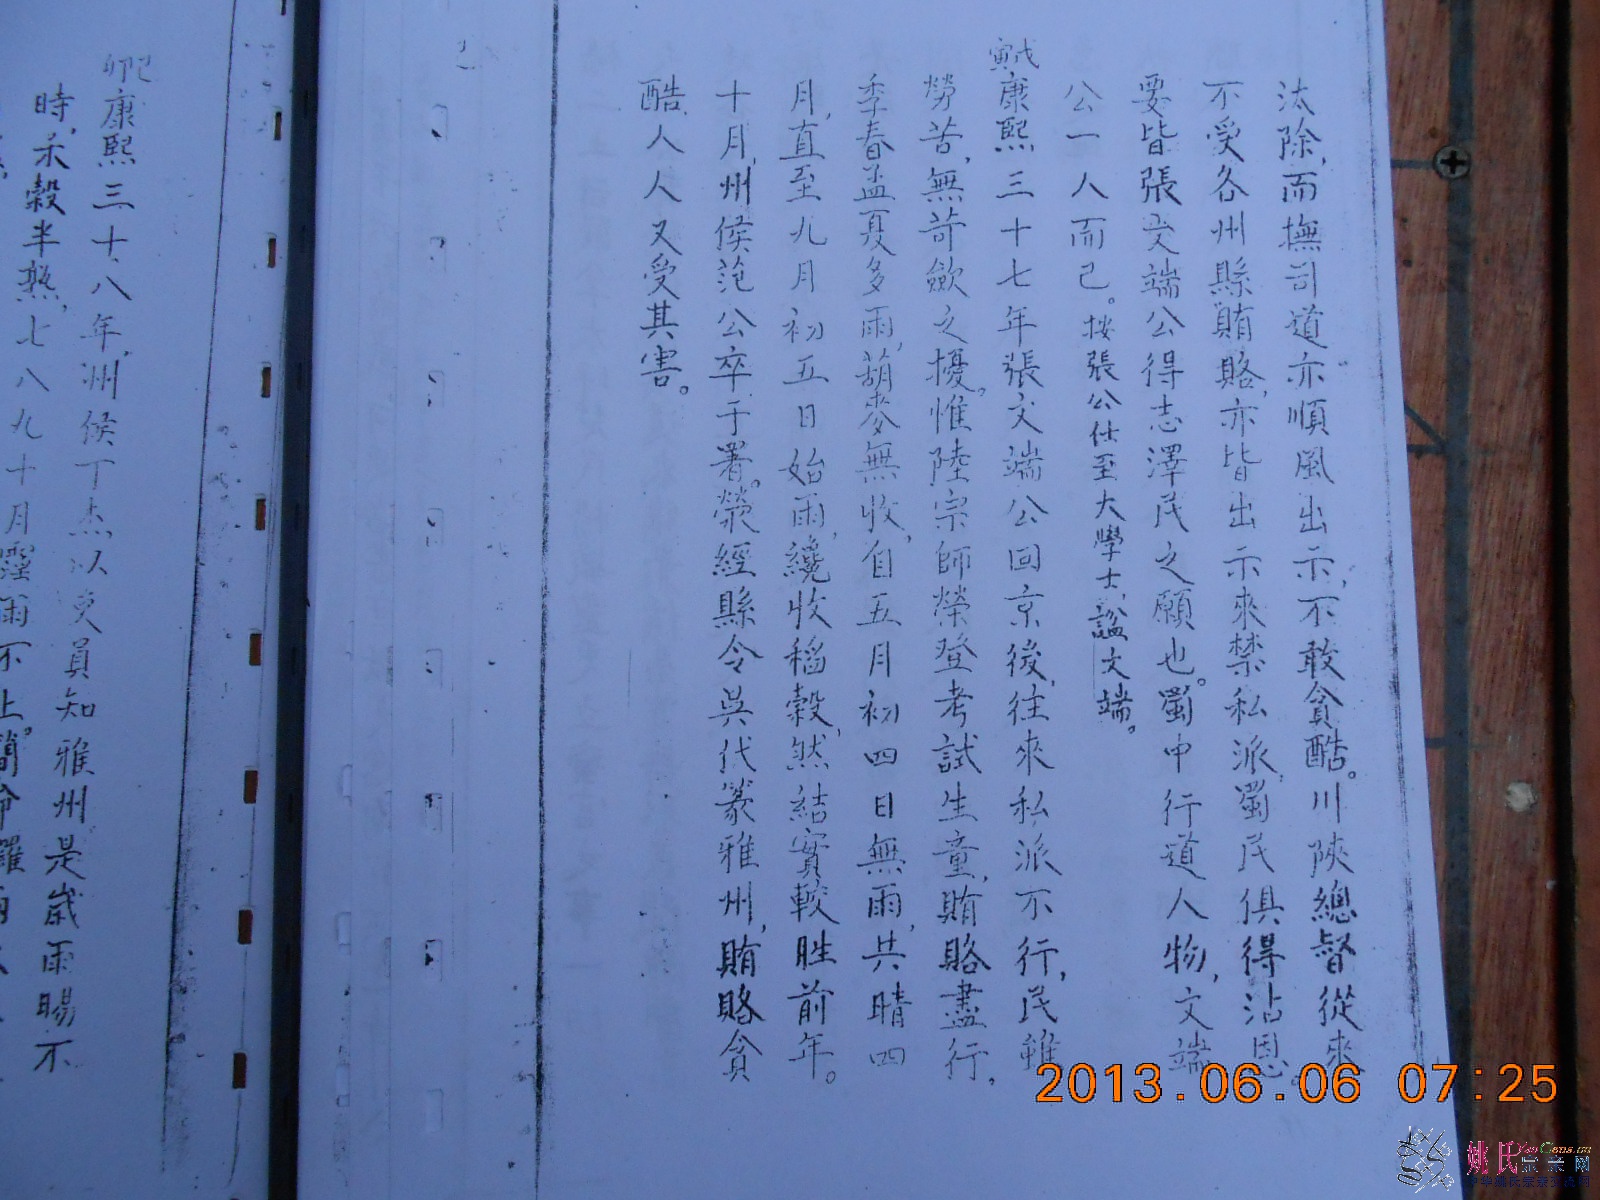 汰除,而撫司道亦順風出示,不敢貪酷。川陝總督從來
不受各州縣賄賂,亦皆出示來禁私派,蜀民俱得沾恩。
要皆張文端公得志澤民之願也。蜀中行道人物,文端
公一人而已。按張公仕至大學士,諡文端。
戊寅康熙三十七年張文端公回京後,往來私派不行,民雖
勞苦,無苛歛之擾。惟陸宗師榮登考試生童,賄賂盡行,
季春孟夏多雨,葫麥無收,自五月初四日無雨,共晴四
月,直至九月初五日始雨,纔收稻穀,然結實較胜前年。
十月,州侯范公卒于署。滎經縣令吳代篆雅州,賄賂貪
酷,人人又受其害。
己卯康熙三十八年,州候丁杰以吏員知雅州是歲雨暘不
時,禾穀半熟,七八九十月霪雨不止。
2013.06.06 07:25
姚氏宗亲网